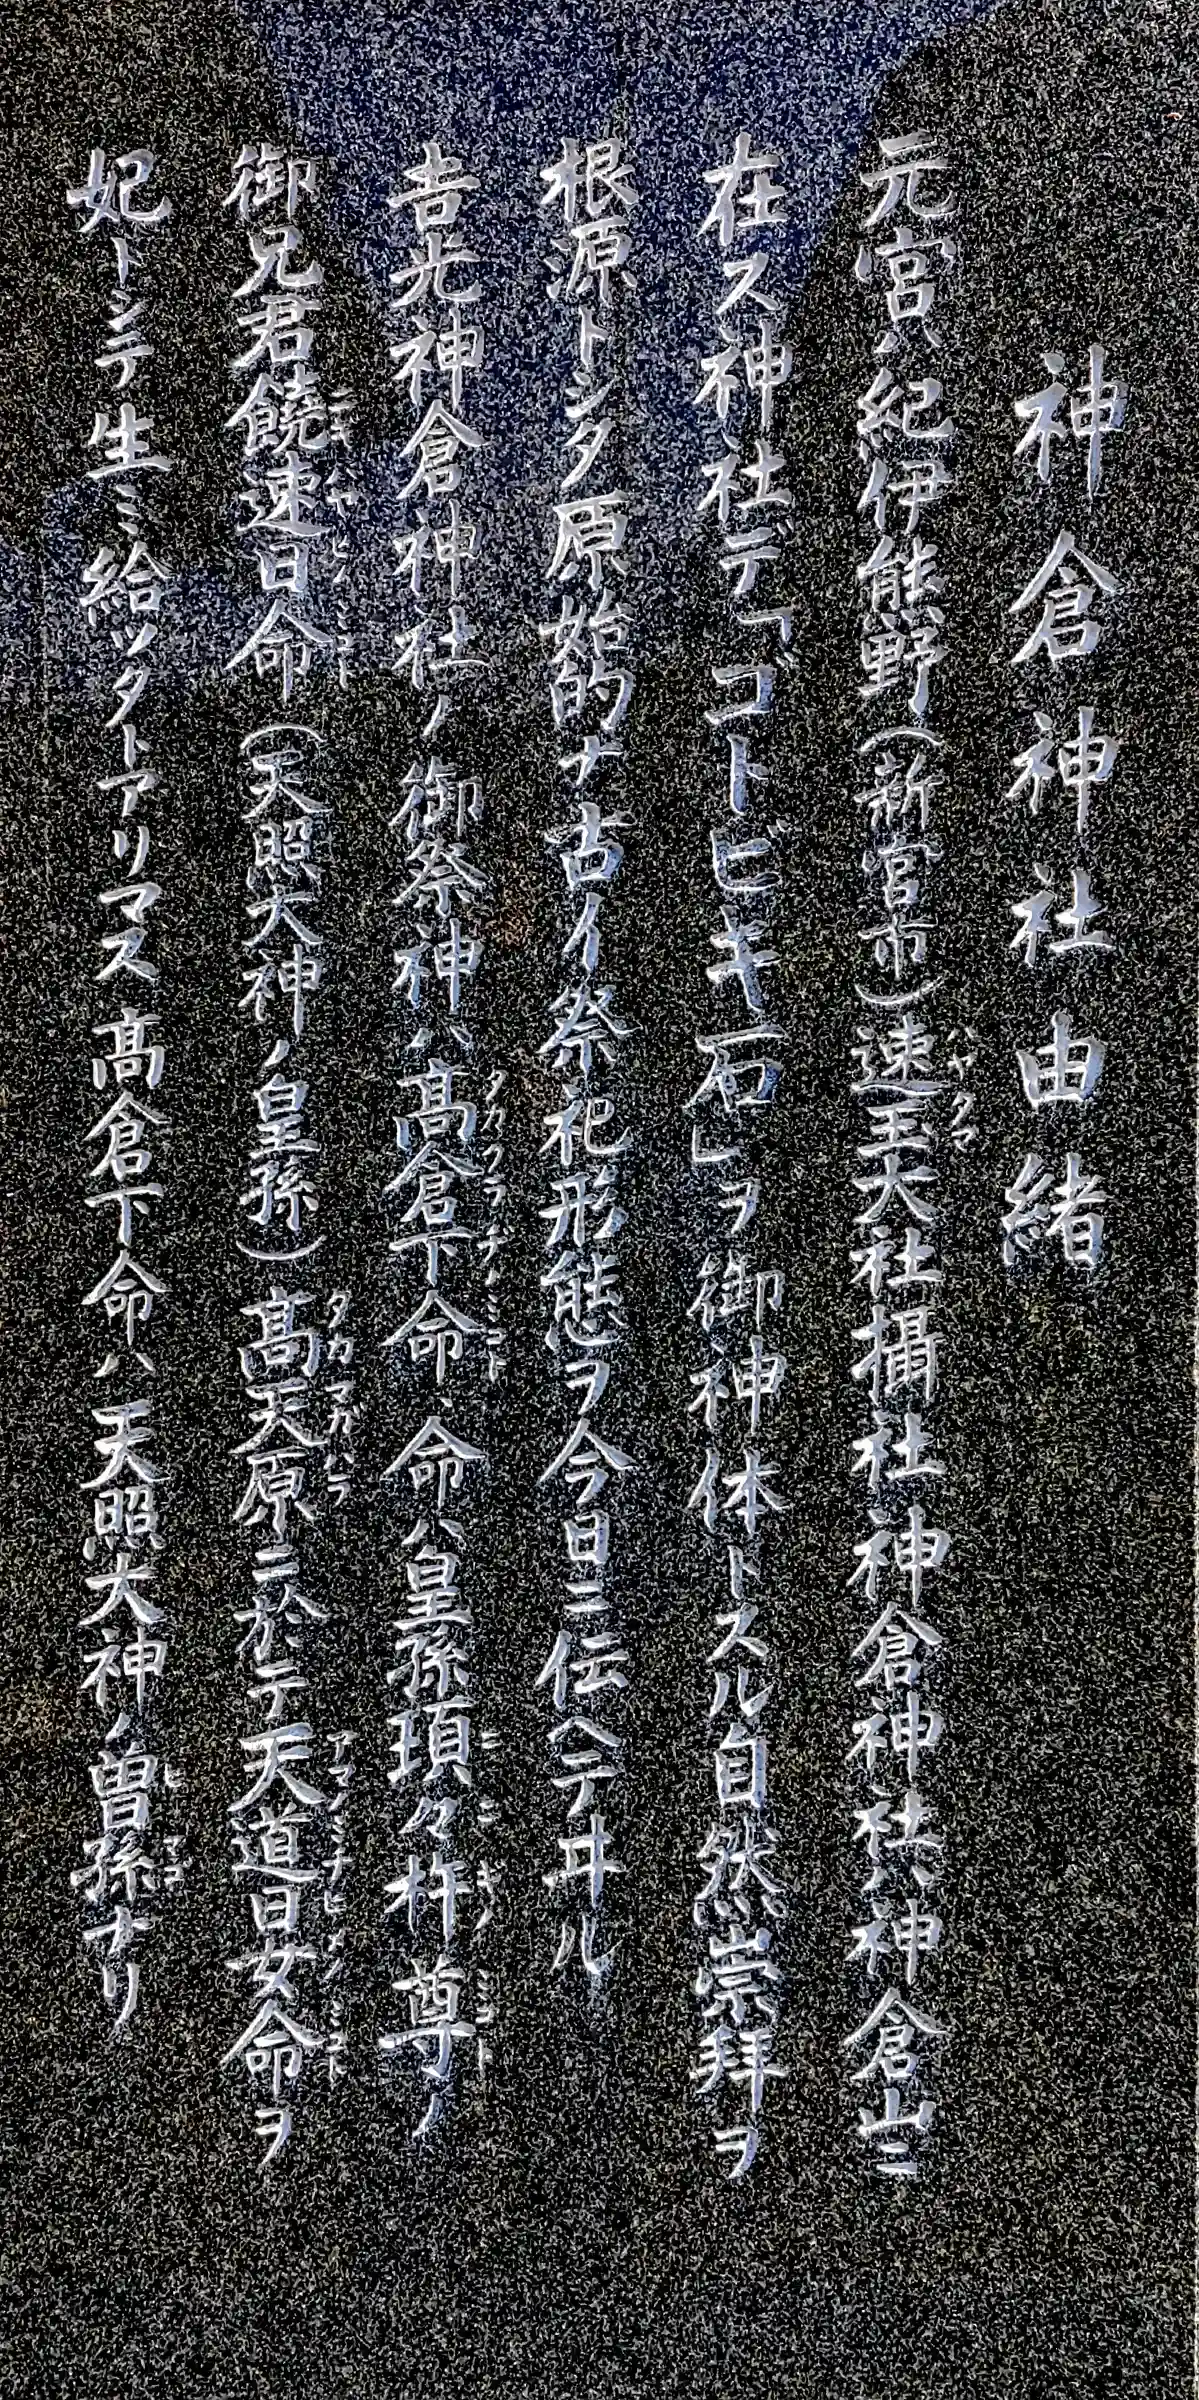 神倉神社由緒
元宮ハ紀伊熊野(新宮市)速玉大社攝社神倉神社ハ神倉山ニ
在ス神社デ「ゴトビキ石」ヲ御神体トスル自然崇拜ヲ
根源トシタ原始的ナ古イ祭祀形態ヲ今日ニ伝ヘテヰル
吉光神倉神社ノ御祭神ハ髙倉下命、命ハ皇孫瓊々杵尊ノ
御兄君饒速日命(天照大神ノ皇孫)髙天原ニ於テ天道日女命ヲ
妃トシテ生ミ給ッタトアリマス髙倉下命ハ天照大神ノ曽孫ナリ